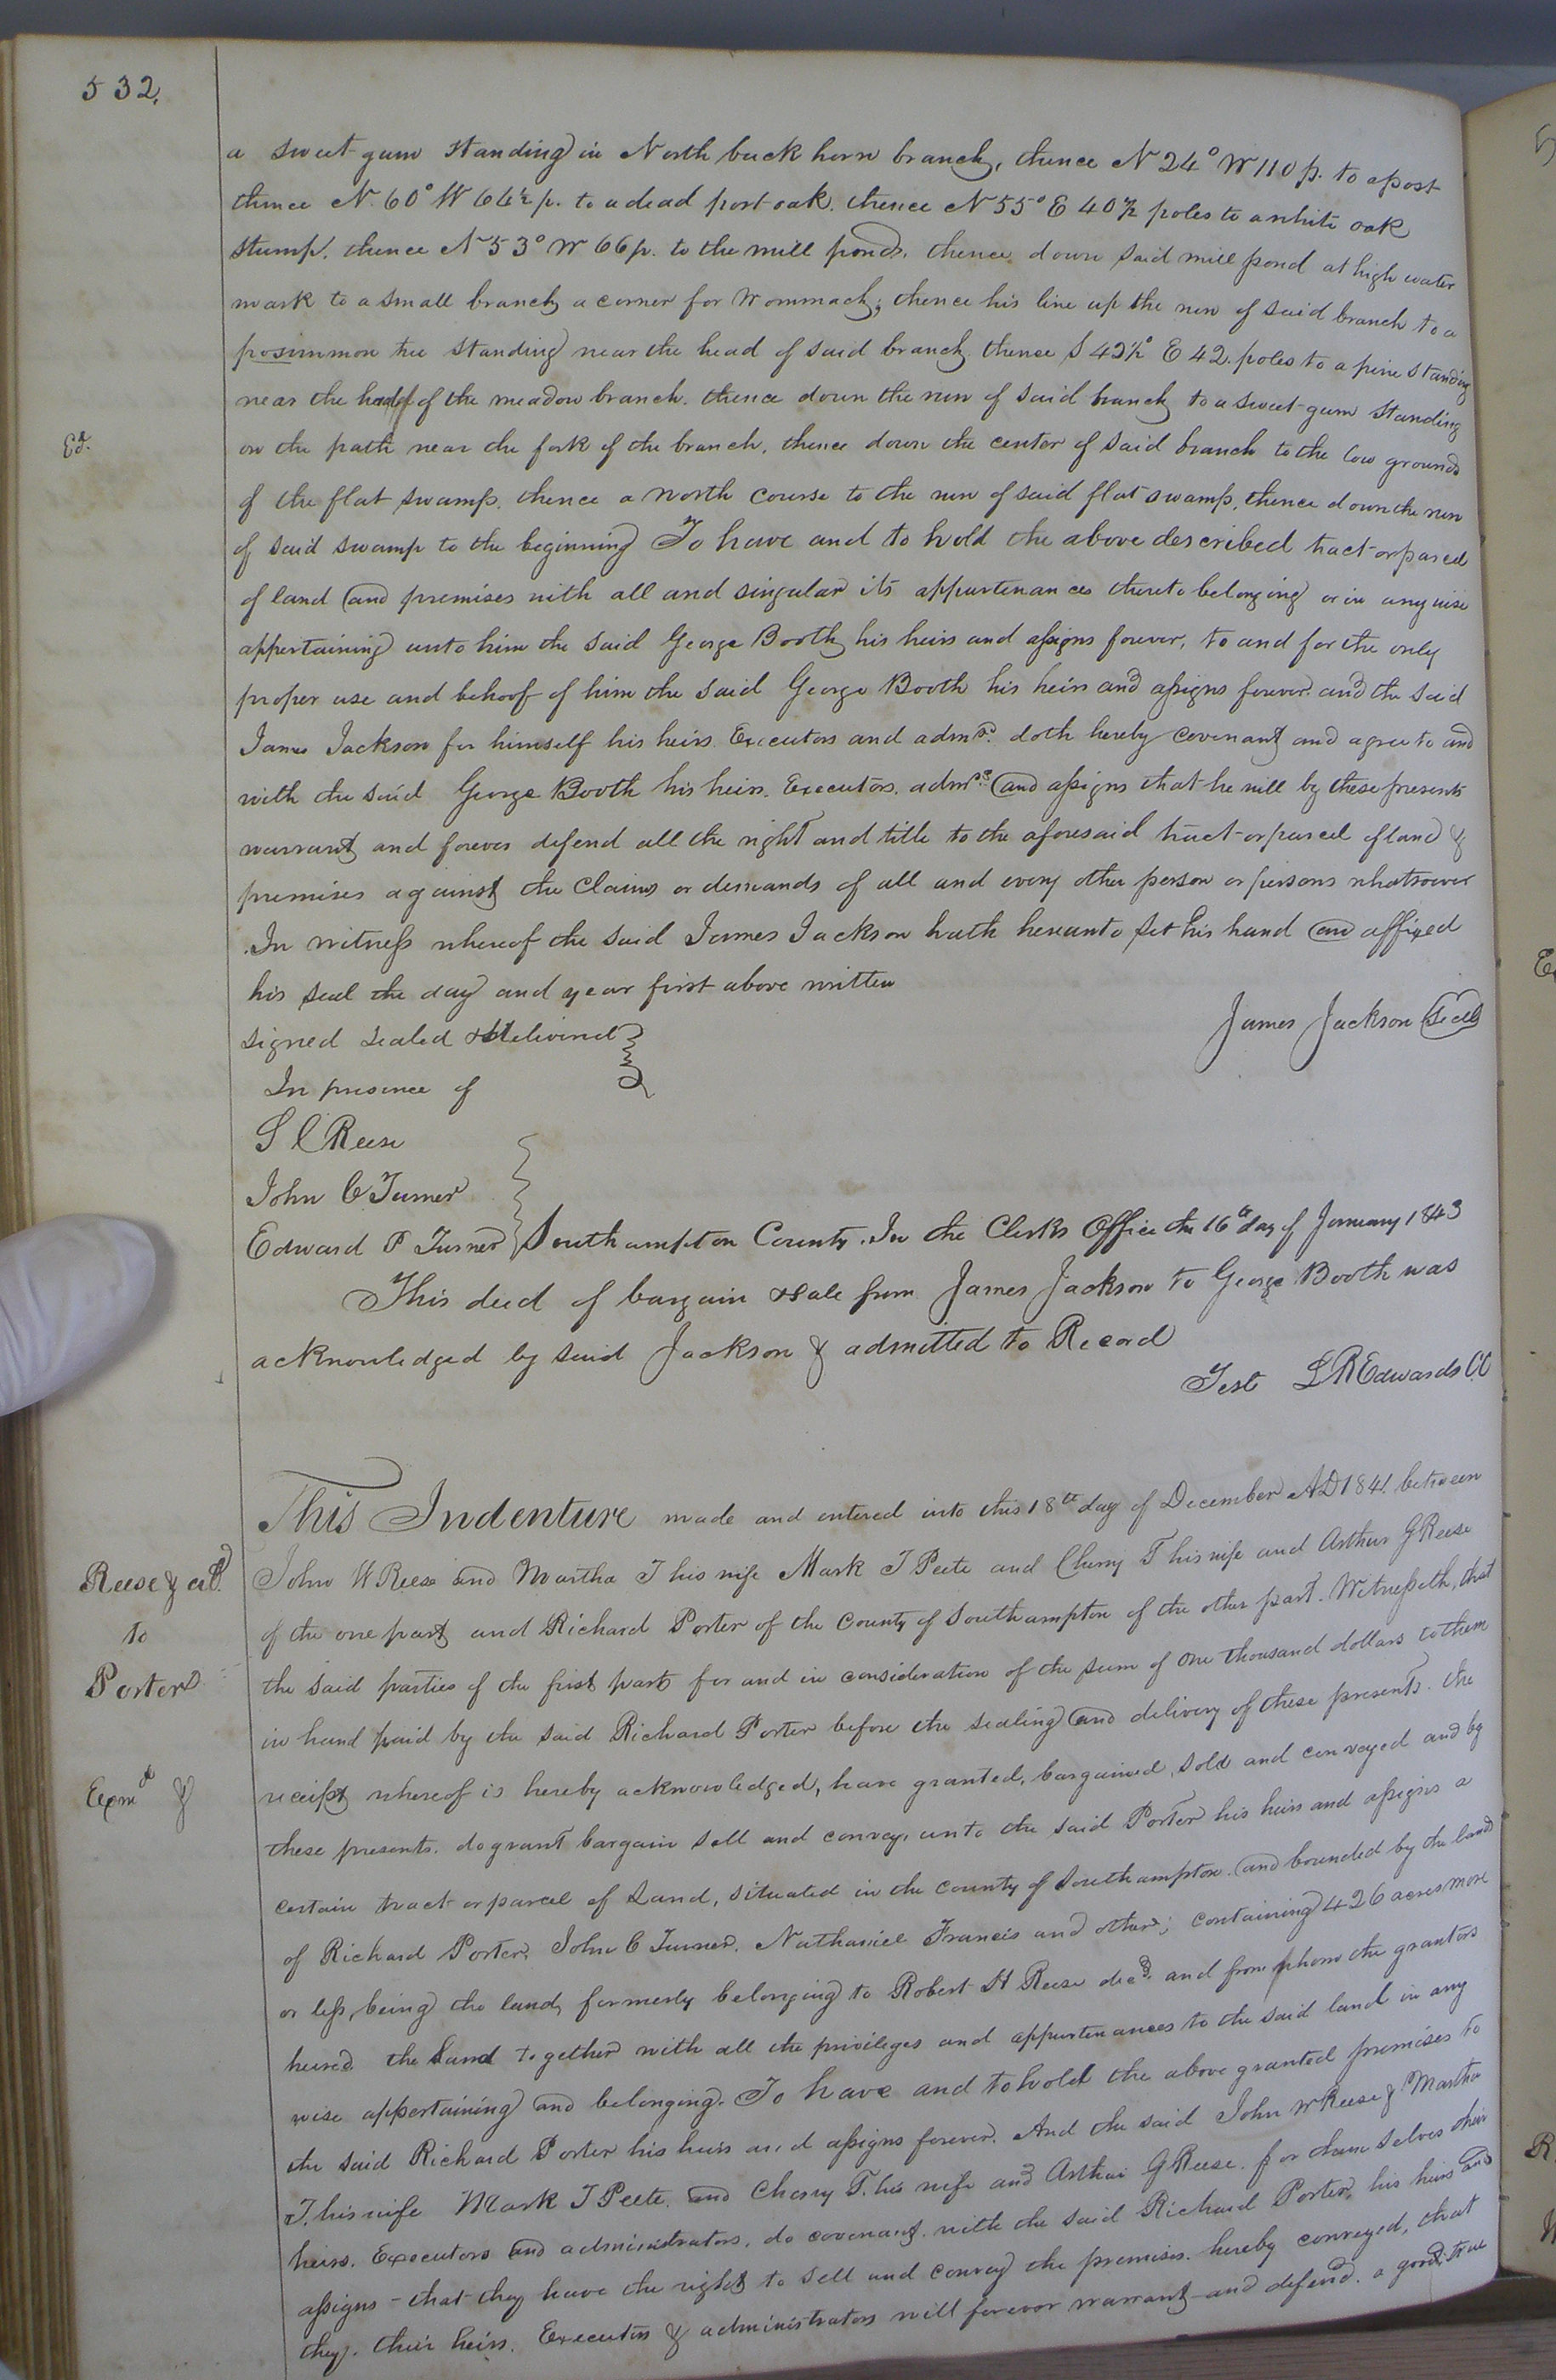 532.
a sweet gum standing in North buck horn branch, thence N 24° W 110 p. to a post
thence N. 60° W 64½ p. to a dead post oak. thence N 55° E 40½ poles to a white oak
stump. thence N 53° W 66 p. to the mill pond. thence down said mill pond at high water
mark to a small branch a corner for Wommack; thence his line up the run of said branch to a
posimmon tree standing near the head of said branch thence S 42½° E 42. poles to a pine standing
near the head of the meadow branch. thence down the run of said branch to a sweet gum standing
Ed.
on the path near the fork of the branch, thence down the center of said branch to the low grounds
of the flat swamp. thence a north course to the run of said flat swamp, thence down the run
of said swamp to the beginning To have and to hold the above described tract or parcel
of land and premises with all and singular its appurtenances thereto belonging or in any wise
appertaining unto him the said George Booth his heirs and assigns forever, to and for the only
proper use and behoof of him the said George Booth his heirs and assigns forever. and the said
James Jackson for himself his heirs Executors and admrs. doth hereby covenant and agree to and
with the said George Booth his heirs. Executors. admrs. and assigns that he will by these presents
warrant and forever defend all the right and title to the aforesaid tract or parcel of land &
premises against the Claims or demands of all and every other person or persons whatsoever
In witness whereof the said James Jackson hath hereunto set his hand and affixed
his seal the day and year first above written
James Jackson Seal
signed sealed & delivered
In presence of
S C Reese
John C Turner
Edward P Turner
Southampton County. In the Clerks Office the 16th day of January 1843
This deed of bargain & sale from James Jackson to George Booth was
acknowledged by said Jackson & admitted to Record
Test L R Edwards CC
This Indenture made and entered into this 18th day of December AD 1841 between
Reese & al.
John W Reese and Martha T his wife Mark T Peete and Cherry T his wife and Arthur G Reese
to
of the one part and Richard Porter of the County of Southampton of the other part. Witnesseth, that
Porter
the said parties of the first part for and in consideration of the sum of One thousand dollars to them
in hand paid by the said Richard Porter before the sealing and delivery of these presents. the
Exmd &
receipt whereof is hereby acknowledged, have granted, bargained, sold and conveyed and by
these presents. do grant bargain sell and convey, unto the said Porter his heirs and assigns a
certain tract or parcel of Land, situated in the county of Southampton. and bounded by the land
of Richard Porter, John C Turner, Nathaniel Francis and others; containing 426 acres more
or less, being the land, formerly belonging to Robert H Reese decd. and from whom the grantors
heired the Land together with all the privileges and appurtenances to the said land in any
wise appertaining and belonging. To have and to hold the above granted premises to
the said Richard Porter his heirs and assigns forever. And the said John W Reese & Martha
T. his wife Mark T Peete. and Cherry T. his wife and Arthur G Reese. for them selves their
heirs. Executors and administrators. do covenant. with the said Richard Porter, his heirs and
assigns - that they have the right to sell and convey the premises. hereby conveyed, that
they. their heirs. Executors & administrators will forever warrant and defend. a good, true